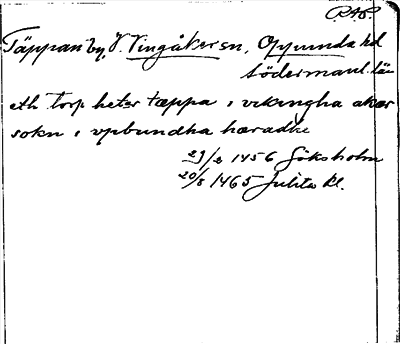 R.A.P.
Täppan by, V. Vingåker sn, Oppunda hd
Södermanl. län
eth torp heter tæppa i vikingha aker
sokn i vpbundha hæradhe
29/2 1456 Göksholm
20/8 1465 Julita kl.